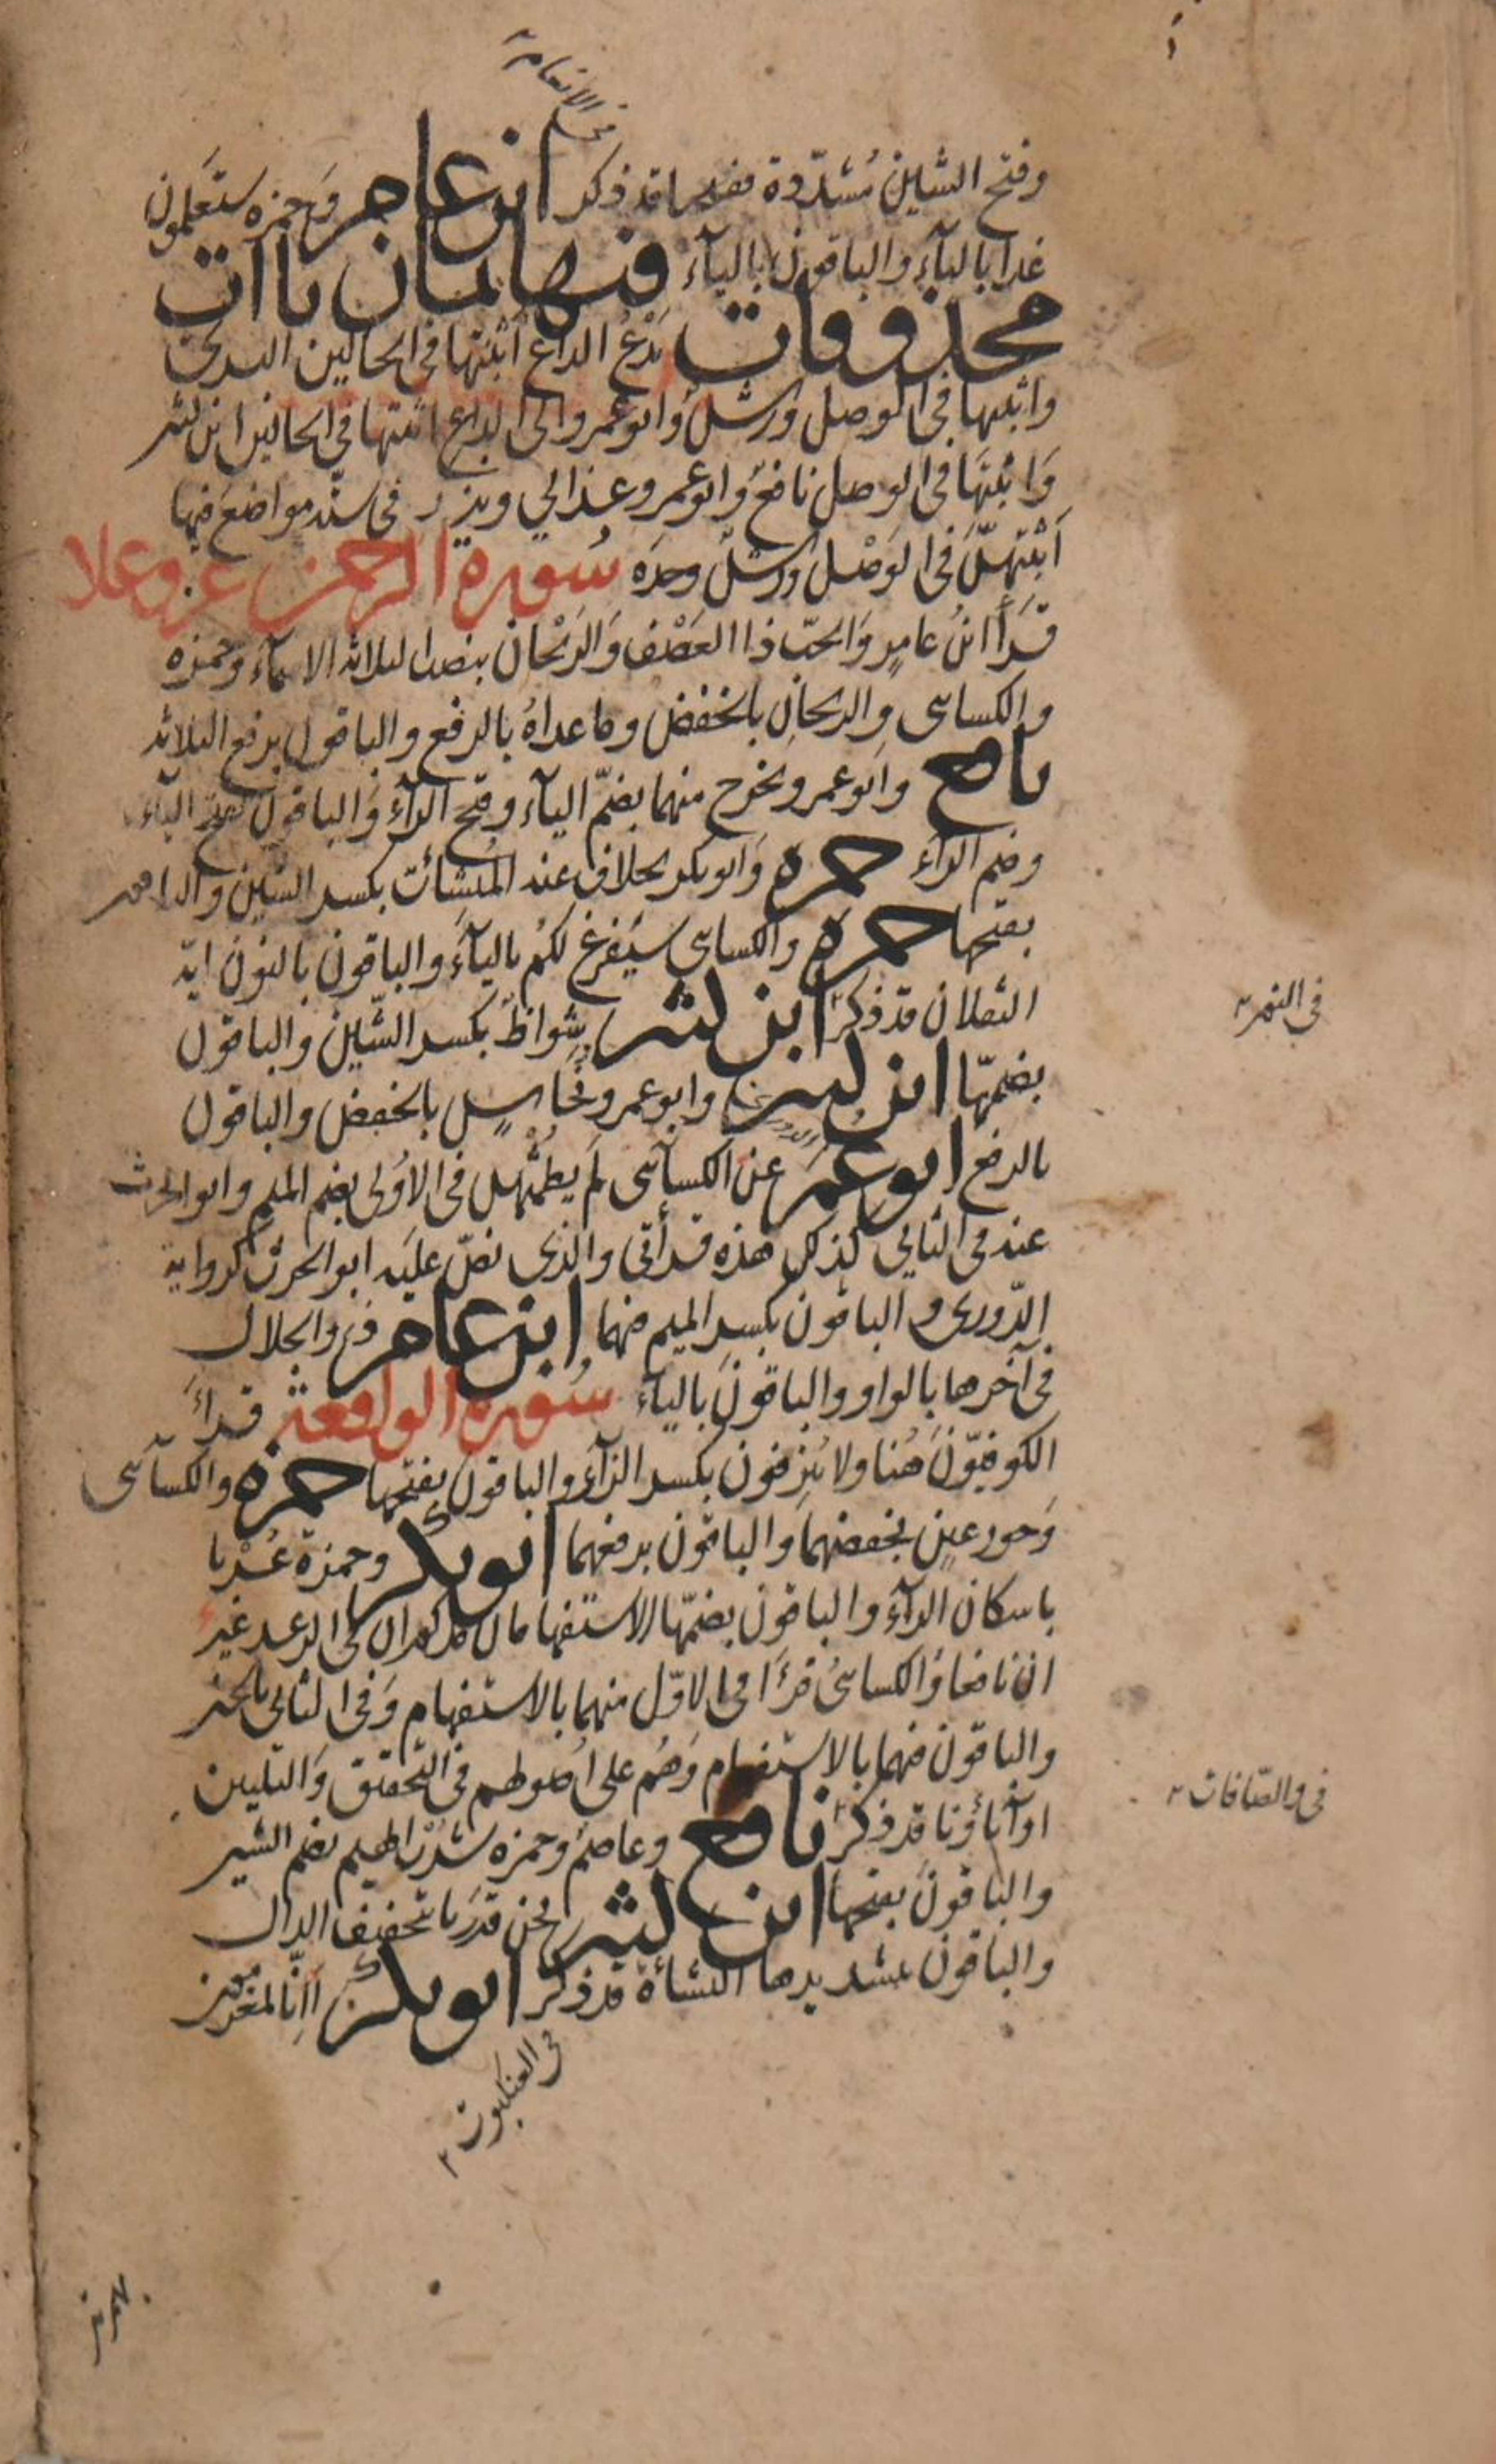 في الانعام
وفتح الشين مُشدّدة ففتحنا قد ذكر ابن عامر وحمزه ستعلمون
غدا بالتآء والباقون باليآء فيها ثمان ياآت
محذوفات يَدْعُ الداع أثبتها في الحالين البزي
واثبتها في الوصل ورش وابو عمرو الى الداع اثبتها في الحالين ابن كثير
وَاثبتهَا في الوصل نافع وابو عمرو عذابي ونذر في ستة مواضع فيها
أَثبتهنَّ في الوَصْل ورش وحدَه سُورة الرحمن عز وعلا
قَرَأَ ابنُ عامرٍ وَالحبّ ذا العَصْف وَالرَيْحان بنصب الثلاثة الاسمآء وحمزه
والكساى والريحانِ بالخفض وما عداهُ بالرفع والباقون برفع الثلاثة
نافع وابو عمرو يخرج منهما بضمّ اليآء وفتح الرآء والباقون بفتح اليآء
وضم الرآء حمزه وَابو بكر بخلاف عنه المُنشئات بكسر الشين والباقون
بفتحها حمزه والكساى سيَفرغ لكمُ باليآء والباقون بالنون ايّه
الثقلان قد ذكر ابن كثير شِواظ بكسر الشّين والباقون
بضمّها ابن كثير وابو عمرو ونُحاسٍ بالخفض والباقون
بالرفع ابو عُمَر عن الكسآئى لَم يطمُثهن في الاُولى بضم الميم وابو الحرث
عنه في الثاني كذلك هذه قرأتي والذى نصّ عليَه ابو الحرث كرواية
الدّورى والباقون بكسر الميم فيهما ابن عامر ذو الجلال
في آخرها بالواو والباقونَ باليآء سُورة الواقعة قرأَ
الكوفيّونَ هُنا ولا يُنزِفون بكسر الزآء والباقون بفتحها حمزه والكسآئى
وَحورٍ عينٍ بخفضهما والباقون برفعهما ابو بكر وحمزة عُرْبا
باسكان الرآء والباقون بضمّها الاستفهامان مذكوران في الرعد غير
ان نافعا وَالكسائىُ قرَءَا في الاوّل منهما بالاستفهام وَفي الثاني بالخبر
والباقون فيهما بالاستفهام وَهُم على اُصُولهم في التحقيق وَالتليين
اوآبآؤنا قد ذكر نافع وعاصم وحمزه شُرْب الهيم بضم الشين
والباقونَ بفتحها ابن كثير نحن قدَرنا بتخفيف الدال
والباقون بتشديدها النشأة قد ذكر ابو بكر أَاِنّا لمغرمون
في العنكبوت
في النور
في والصّافات